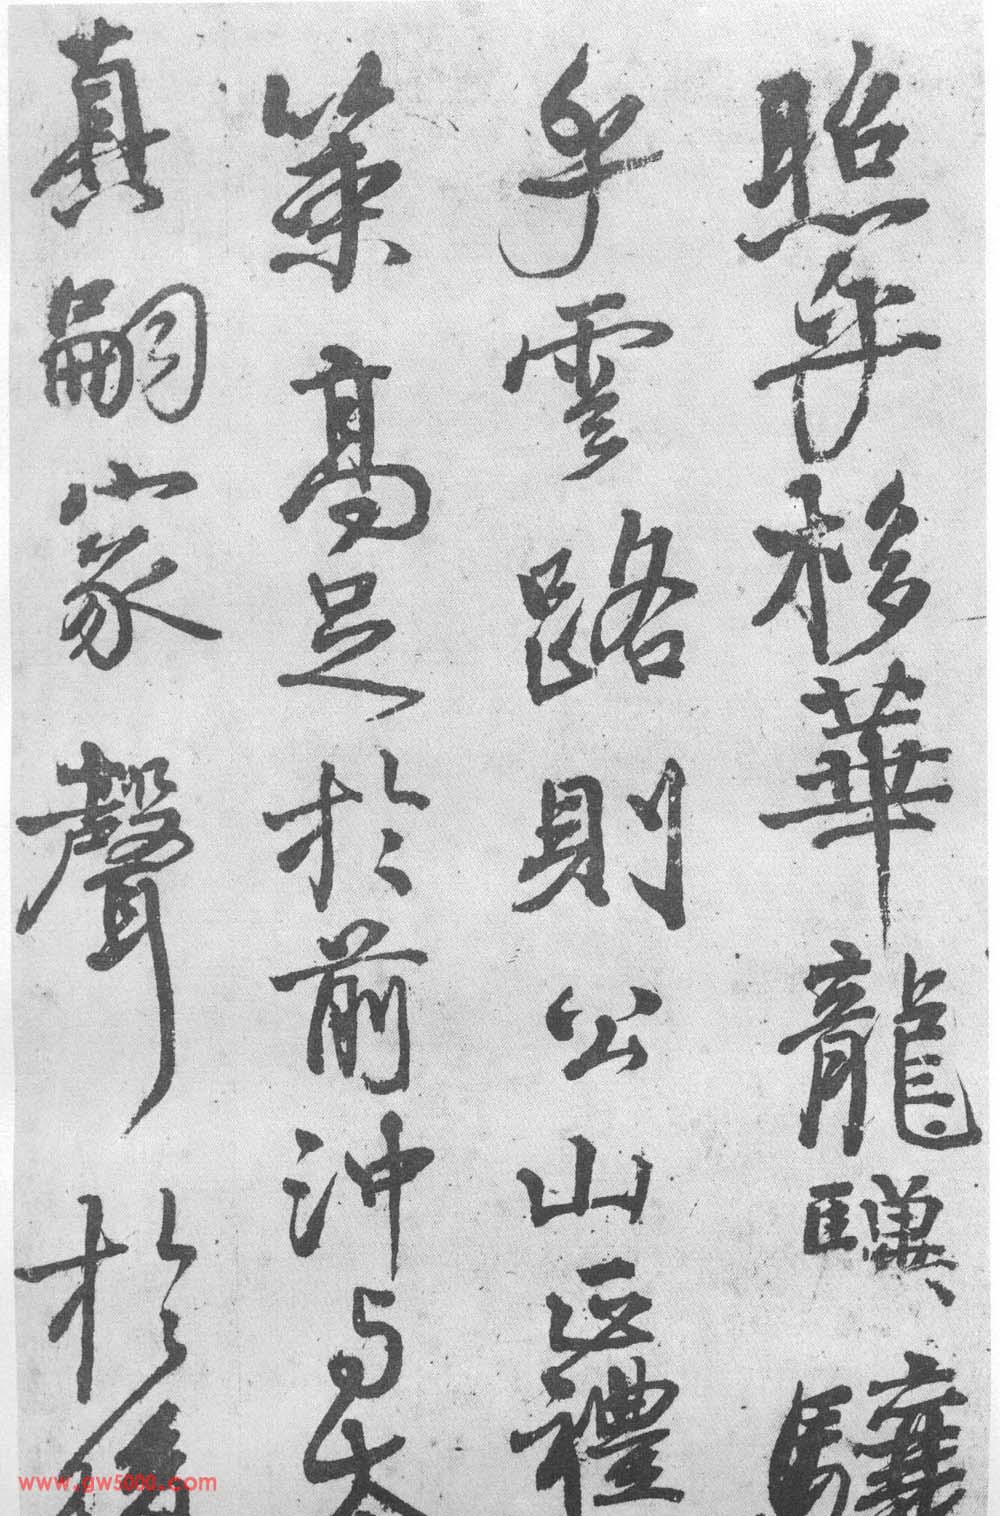 照乎栘華龍驥驤
乎雲路則公山正禮
策高足於前沖与太
真嗣家聲於後
www.gw5000.com